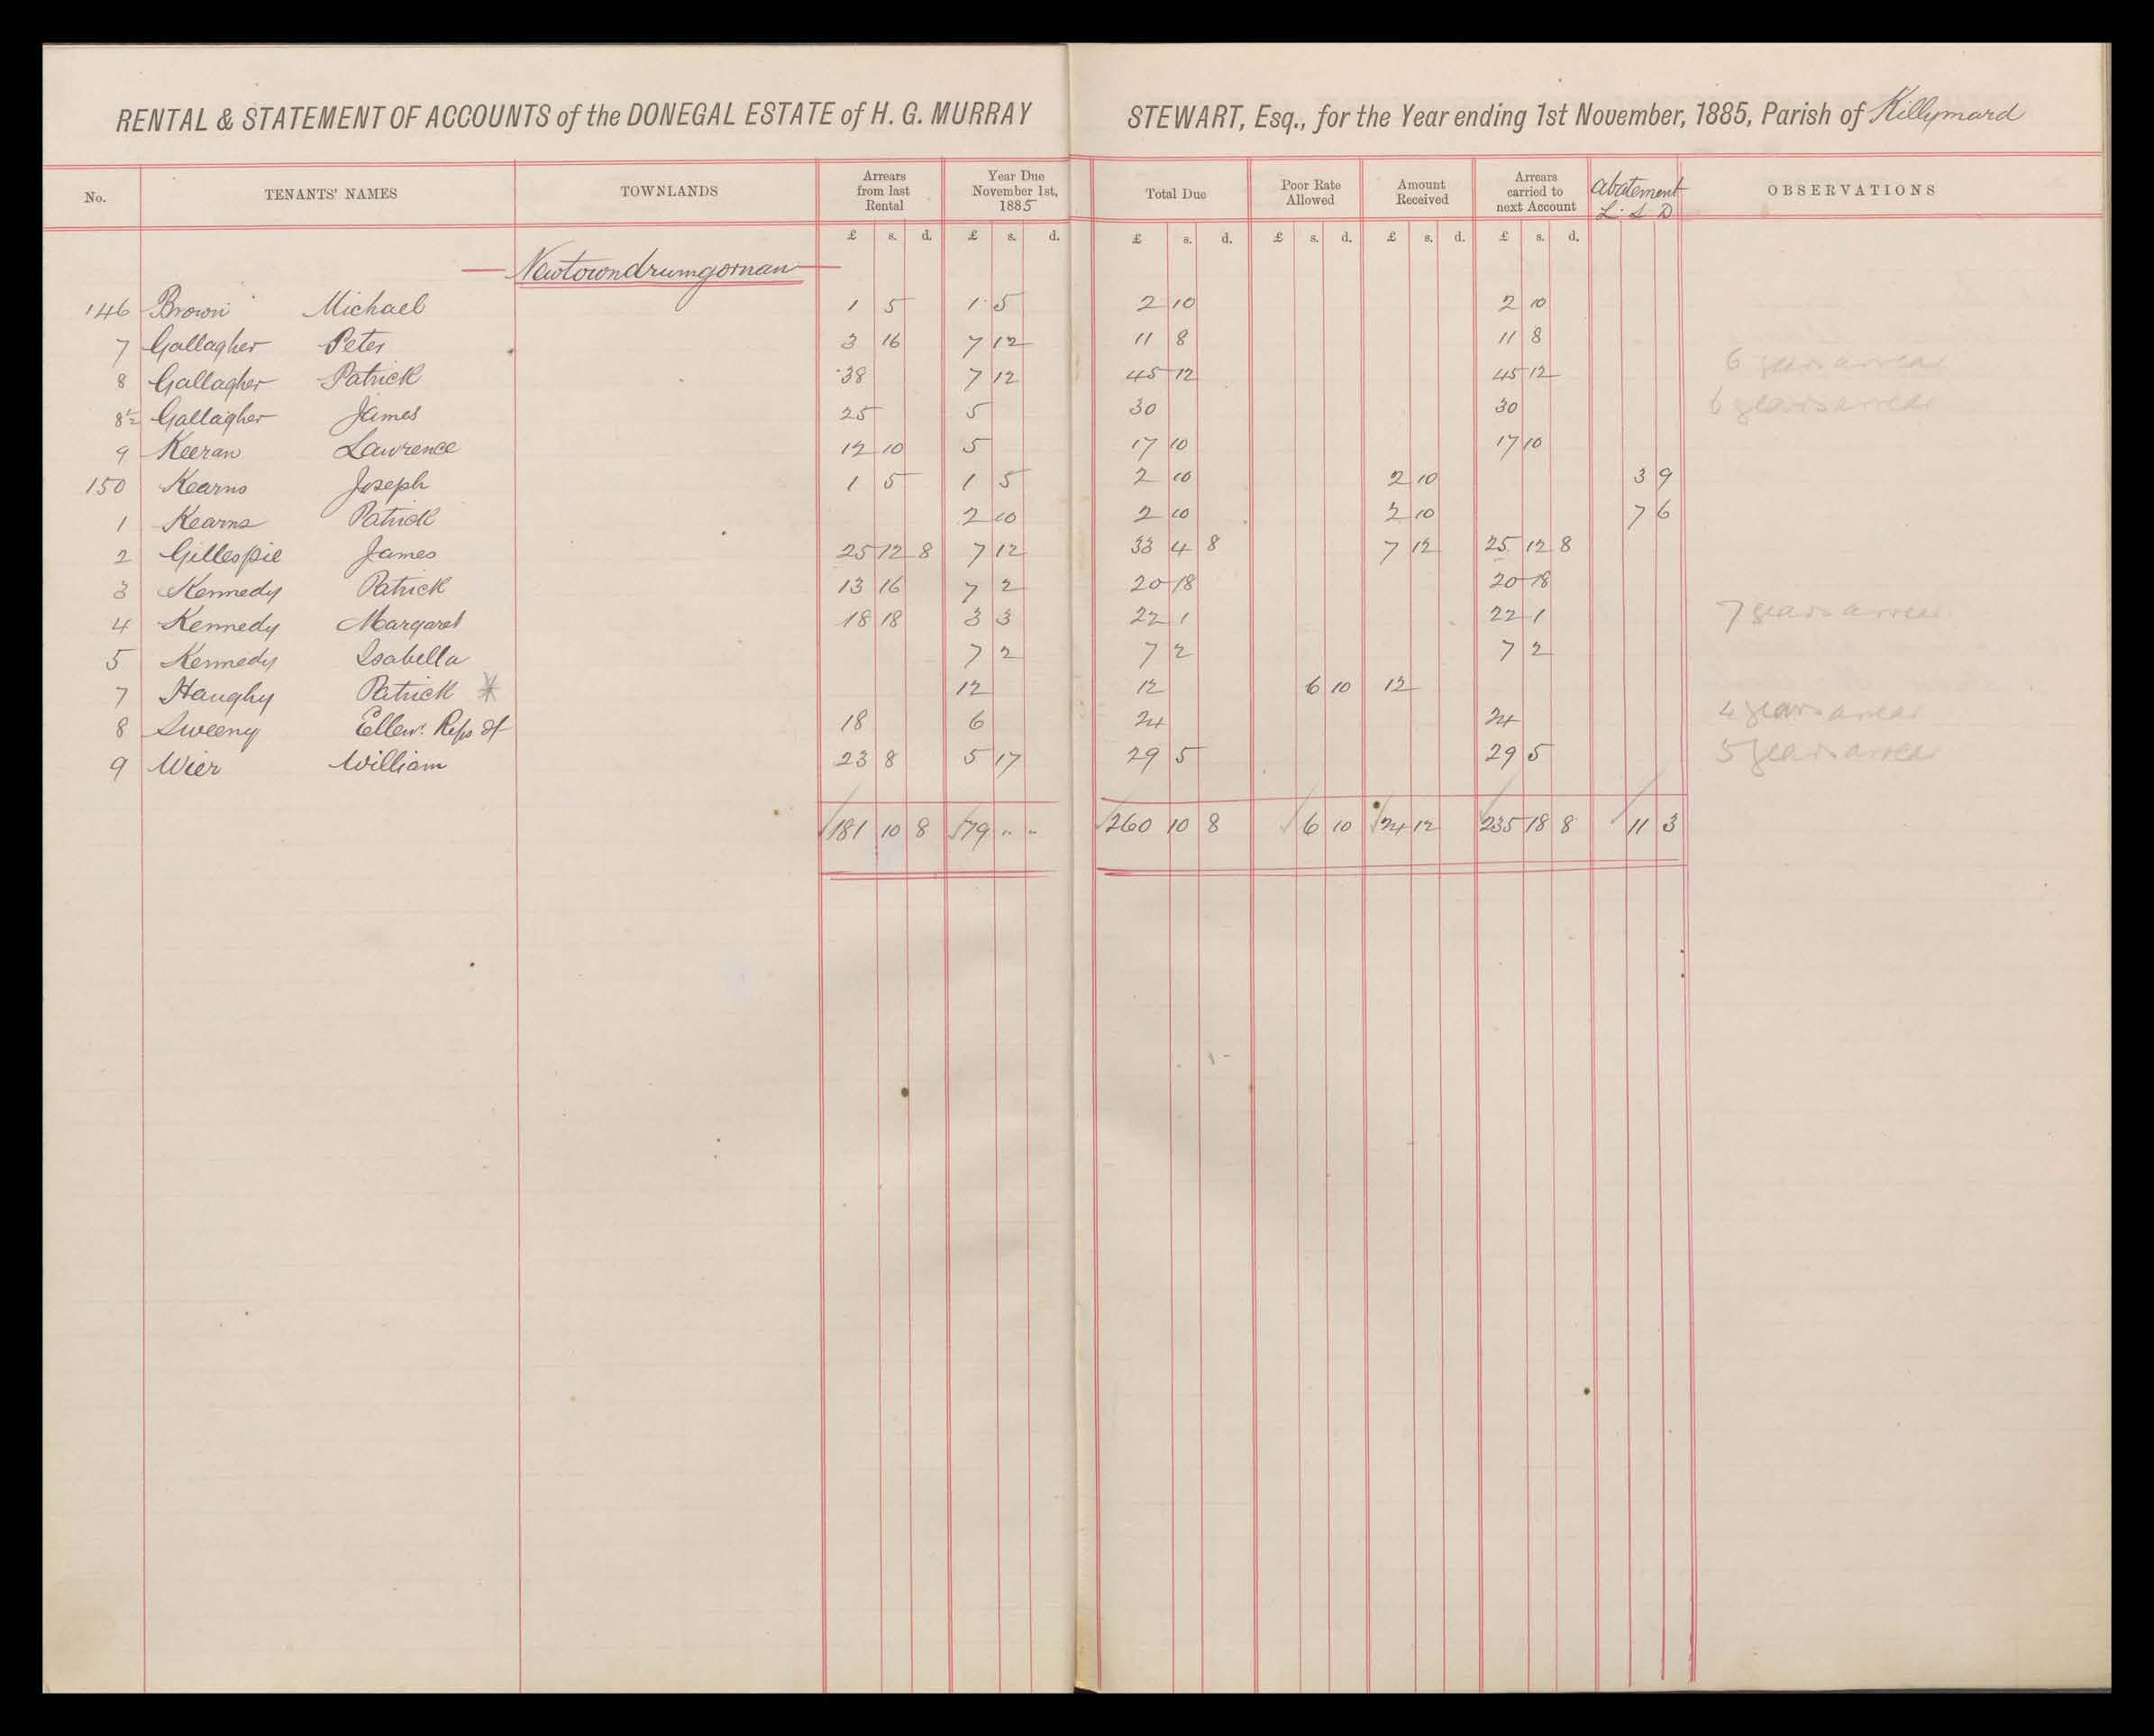 RENTAL & STATEMENT OF ACCOUNTS of the DONEGAL ESTATE of H. G. MURRAY STEWART, Esq., for the Year ending 1st November, 1885, Parish of Killymard
No. TENANTS' NAMES TOWNLANDS Arrears from last Rental Year Due November 1st, 1885 Total Due Poor Rate Allowed Amount Received Arrears carried to next Account Abatement L. S. D OBSERVATIONS
£ s. d. £ s. d. £ s. d. £ s. d. £ s. d. £ s. d.
Newtowndrumgornan
146 Brown Michael 1 5 1 5 2 10 2 10
7 Gallagher Peter 3 16 7 12 11 8 11 8
8 Gallagher Patrick 38 7 12 45 12 45 12 6 years arrear
8½ Gallagher James 25 5 30 30 6 years arrear
9 Keeran Lawrence 12 10 5 17 10 17 10
150 Kearns Joseph 1 5 1 5 2 10 2 10 3 9
1 Kearns Patrick 2 10 2 10 2 10 7 6
2 Gillespie James 25 12 8 7 12 33 4 8 7 12 25 12 8
3 Kennedy Patrick 13 16 7 2 20 18 20 18
4 Kennedy Margaret 18 18 3 3 22 1 22 1 7 years arrear
5 Kennedy Isabella 7 2 7 2 7 2
7 Haughy Patrick * 12 12 6 10 12
8 Sweeny Ellen Reps of 18 6 24 24 4 years arrear
9 Wier William 23 8 5 17 29 5 29 5 5 years arrear
181 10 8 79 " " 260 10 8 6 10 24 12 235 18 8 11 3